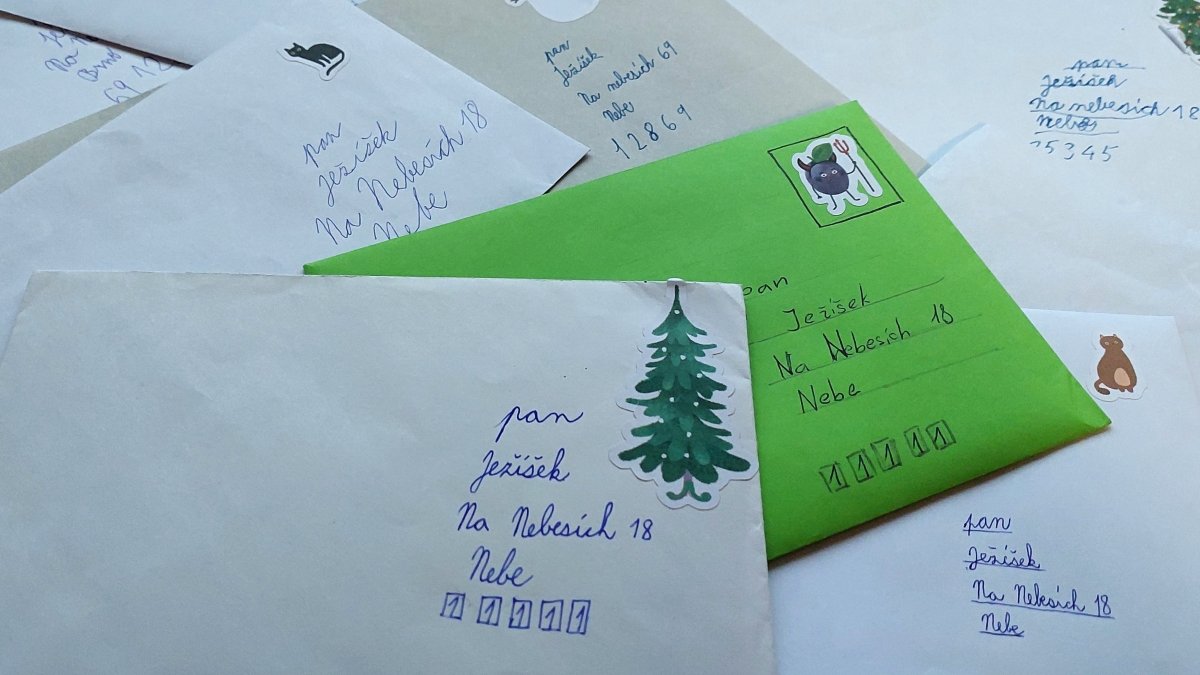 Brno
69 12
pan
Ježíšek
Na Nebesích 18
Nebe
pan
Ježíšek
Na nebesích 69
Nebe
12869
pan
Ježíšek
Na nebesích 18
Nebes
15345
pan
Ježíšek
Na Nebesích 18
Nebe
11111
pan
Ježíšek
Na Nebesích 18
Nebe
11111
pan
Ježíšek
Na Nebesích 18
Nebe